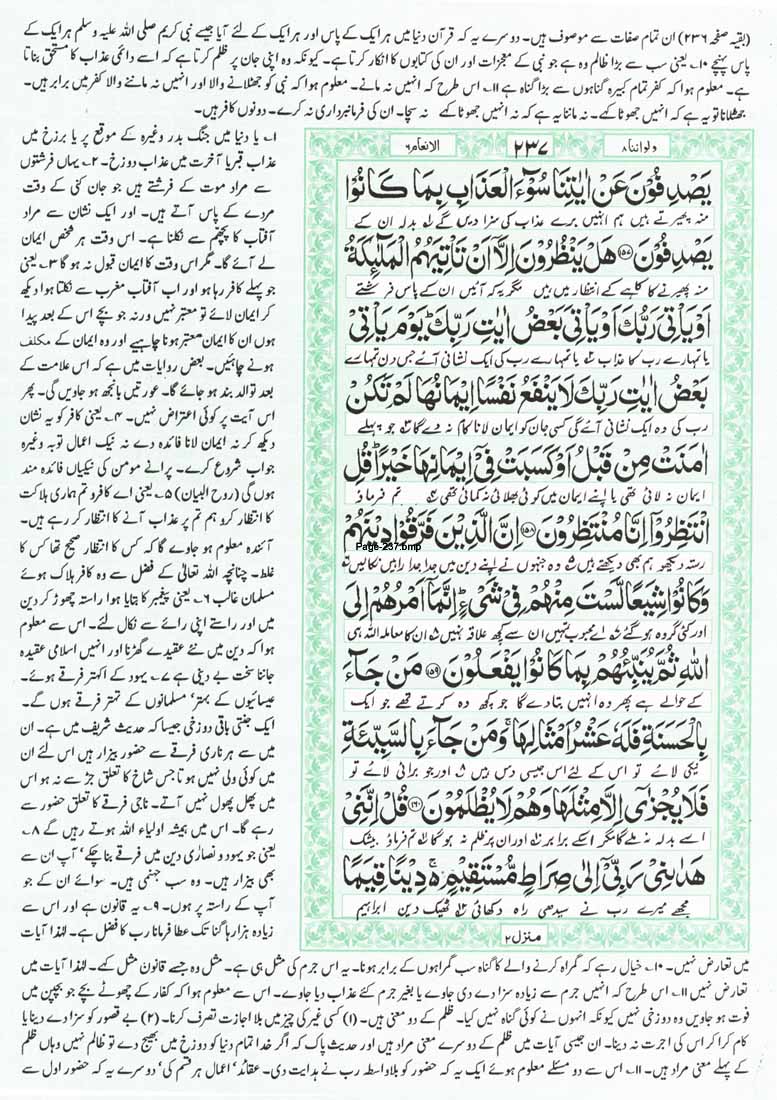 (بقیہ صفحہ ۲۳۶) ان تمام صفات سے موصوف ہیں۔ دوسرے یہ کہ قرآن دنیا میں ہر ایک کے پاس اور ہر ایک کے لئے آیا جیسے نبی کریم صلی اللہ علیہ وسلم ہر ایک کے
پاس پہنچے ۱۰۔ یعنی سب سے بڑا ظالم وہ ہے جو نبی کے معجزات اور ان کی کتابوں کا انکار کرتا ہے۔ کیونکہ وہ اپنی جان پر ظلم کرتا ہے کہ اسے دائمی عذاب کا مستحق بناتا
ہے۔ معلوم ہوا کہ کفر تمام کبیرہ گناہوں سے بڑا گناہ ہے ۱۱۔ اس طرح کہ انہیں نہ مانے۔ معلوم ہوا کہ نبی کو جھٹلانے والا اور انہیں نہ ماننے والا کفر میں برابر ہیں۔
جھٹلانا تو یہ ہے کہ انہیں جھوٹا کہے۔ نہ ماننا یہ ہے کہ نہ انہیں جھوٹا کہے نہ سچا۔ ان کی فرمانبرداری نہ کرے۔ دونوں کافر ہیں۔
ولواننا ۸
۲۳۷
الانعام ۶
یَصۡدِفُوۡنَ عَنۡ اٰیٰتِنَا سُوۡٓءَ الۡعَذَابِ بِمَا کَانُوۡا
منہ پھیرتے ہیں ہم انہیں برے عذاب کی سزا دیں گے بدلہ ان کے
یَصۡدِفُوۡنَ ﴿۱۵۷﴾ ہَلۡ یَنۡظُرُوۡنَ اِلَّاۤ اَنۡ تَاۡتِیَہُمُ الۡمَلٰٓئِکَۃُ
منہ پھیرنے کا کاہے کے انتظار میں ہیں مگر یہ کہ آئیں ان کے پاس فرشتے
اَوۡ یَاۡتِیَ رَبُّکَ اَوۡ یَاۡتِیَ بَعۡضُ اٰیٰتِ رَبِّکَ ؕ یَوۡمَ یَاۡتِیۡ
یا تمہارے رب کا عذاب یا تمہارے رب کی ایک نشانی آئے جس دن تمہارے
بَعۡضُ اٰیٰتِ رَبِّکَ لَا یَنۡفَعُ نَفۡسًا اِیۡمَانُہَا لَمۡ تَکُنۡ
رب کی وہ ایک نشانی آئے گی کسی جان کو ایمان لانا کام نہ دے گا جو پہلے
اٰمَنَتۡ مِنۡ قَبۡلُ اَوۡ کَسَبَتۡ فِیۡۤ اِیۡمَانِہَا خَیۡرًا ؕ قُلِ
ایمان نہ لائی تھی یا اپنے ایمان میں کوئی بھلائی نہ کمائی تھی تم فرماؤ
انۡتَظِرُوۡۤا اِنَّا مُنۡتَظِرُوۡنَ ﴿۱۵۸﴾ اِنَّ الَّذِیۡنَ فَرَّقُوۡا دِیۡنَہُمۡ
Page-237.bmp
رستہ دیکھو ہم بھی دیکھتے ہیں وہ جنہوں نے اپنے دین میں جدا جدا راہیں نکالیں
وَ کَانُوۡا شِیَعًا لَّسۡتَ مِنۡہُمۡ فِیۡ شَیۡءٍ ؕ اِنَّمَاۤ اَمۡرُہُمۡ اِلَی
اور کئی گروہ ہو گئے اے محبوب تمہیں ان سے کچھ علاقہ نہیں ان کا معاملہ اللہ ہی
اللّٰہِ ثُمَّ یُنَبِّئُہُمۡ بِمَا کَانُوۡا یَفۡعَلُوۡنَ ﴿۱۵۹﴾ مَنۡ جَآءَ
کے حوالے ہے پھر وہ انہیں بتا دے گا جو کچھ وہ کرتے تھے جو ایک
بِالۡحَسَنَۃِ فَلَہٗ عَشۡرُ اَمۡثَالِہَا ۚ وَ مَنۡ جَآءَ بِالسَّیِّئَۃِ
نیکی لائے تو اس کے لئے اس جیسی دس ہیں اور جو برائی لائے تو
فَلَا یُجۡزٰۤی اِلَّا مِثۡلَہَا وَ ہُمۡ لَا یُظۡلَمُوۡنَ ﴿۱۶۰﴾ قُلۡ اِنَّنِیۡ
اسے بدلہ نہ ملے گا مگر اسکے برابر اور ان پر ظلم نہ ہو گا تم فرماؤ بیشک
ہَدٰىنِیۡ رَبِّیۡۤ اِلٰی صِرَاطٍ مُّسۡتَقِیۡمٍ ۬ۚ دِیۡنًا قِیَمًا
مجھے میرے رب نے سیدھی راہ دکھائی ٹھیک دین ابراہیم
منزل ۲
۱۔ یا دنیا میں جنگ بدر وغیرہ کے موقع پر یا برزخ میں
عذاب قبر یا آخرت میں عذاب دوزخ۔ ۲۔ یہاں فرشتوں
سے مراد موت کے فرشتے ہیں جو جان کنی کے وقت
مردے کے پاس آتے ہیں۔ اور ایک نشان سے مراد
آفتاب کا پچھم سے نکلنا ہے۔ اس وقت ہر شخص ایمان
لے آئے گا۔ مگر اس وقت کا ایمان قبول نہ ہو گا ۳۔ یعنی
جو پہلے کافر رہا ہو اور اب آفتاب مغرب سے نکلتا ہوا دیکھ
کر ایمان لائے تو معتبر نہیں ورنہ جو بچے اس کے بعد پیدا
ہوں ان کا ایمان معتبر ہونا چاہیے اور وہ ایمان کے مکلف
ہونے چاہئیں۔ بعض روایات میں ہے کہ اس علامت کے
بعد توالد بند ہو جائے گا۔ عورتیں بانجھ ہو جاویں گی۔ پھر
اس آیت پر کوئی اعتراض نہیں۔ ۴۔ یعنی کافر کو یہ نشان
دیکھ کر نہ ایمان لانا فائدہ دے نہ نیک اعمال توبہ وغیرہ
جو اب شروع کرے۔ پرانے مومن کی نیکیاں فائدہ مند
ہوں گی (روح البیان) ۵۔ یعنی اے کافرو تم ہماری ہلاکت
کا انتظار کرو ہم تم پر عذاب آنے کا انتظار کر رہے ہیں۔
آئندہ معلوم ہو جاوے گا کہ کس کا انتظار صحیح تھا کس کا
غلط۔ چنانچہ اللہ تعالیٰ کے فضل سے وہ کافر ہلاک ہوئے
مسلمان غالب ۶۔ یعنی پیغمبر کا بتایا ہوا راستہ چھوڑ کر دین
میں اور راستے اپنی رائے سے نکال لئے۔ اس سے معلوم
ہوا کہ دین میں نئے عقیدے گھڑنا اور انہیں اسلامی عقیدہ
جاننا سخت بے دینی ہے ۷۔ یہود کے اکہتر فرقے ہوئے۔
عیسائیوں کے بہتر' مسلمانوں کے تہتر فرقے ہوں گے۔
ایک جنتی باقی دوزخی جیسا کہ حدیث شریف میں ہے۔ ان
میں سے ہر ناری فرقے سے حضور بیزار ہیں اس لئے ان
میں کوئی ولی نہیں ہوتا جس شاخ کا تعلق جڑ سے نہ ہو اس
میں پھل پھول نہیں آتے۔ ناجی فرقے کا تعلق حضور سے
رہے گا۔ اس میں ہمیشہ اولیاء اللہ ہوتے رہیں گے ۸۔
یعنی جو یہود و نصاریٰ دین میں فرقے بنا چکے' آپ ان سے
بھی بیزار ہیں۔ وہ سب جہنمی ہیں۔ سوائے ان کے جو
آپ کے راستہ پر ہوں۔ ۹۔ یہ قانون ہے اور اس سے
زیادہ ہزار ہا گنا تک عطا فرمانا رب کا فضل ہے۔ لہٰذا آیات
میں تعارض نہیں۔ ۱۰۔ خیال رہے کہ گمراہ کرنے والے کا گناہ سب گمراہوں کے برابر ہونا۔ یہ اس جرم کی مثل ہی ہے۔ مثل وہ جسے قانون مثل کہے۔ لہٰذا آیات میں
تعارض نہیں ۱۱۔ اس طرح کہ انہیں جرم سے زیادہ سزا دے دی جاوے یا بغیر جرم کئے عذاب دیا جاوے۔ اس سے معلوم ہوا کہ کفار کے چھوٹے بچے جو بچپن میں
فوت ہو جاویں وہ دوزخی نہیں کیونکہ انہوں نے کوئی گناہ نہیں کیا۔ ظلم کے دو معنی ہیں۔ (۱) کسی غیر کی چیز میں بلا اجازت تصرف کرنا۔ (۲) بے قصور کو سزا دے دینا یا
کام کرا کر اس کی اجرت نہ دینا۔ ان جیسی آیات میں ظلم کے دوسرے معنی مراد ہیں اور حدیث پاک کہ اگر خدا تمام دنیا کو دوزخ میں بھیج دے تو ظالم نہیں وہاں ظلم
کے پہلے معنی مراد ہیں۔ ۱۱۔ اس سے دو مسئلے معلوم ہوئے ایک یہ کہ حضور کو بلاواسطہ رب نے ہدایت دی۔ عقائد' اعمال ہر قسم کی' دوسرے یہ کہ حضور اول سے